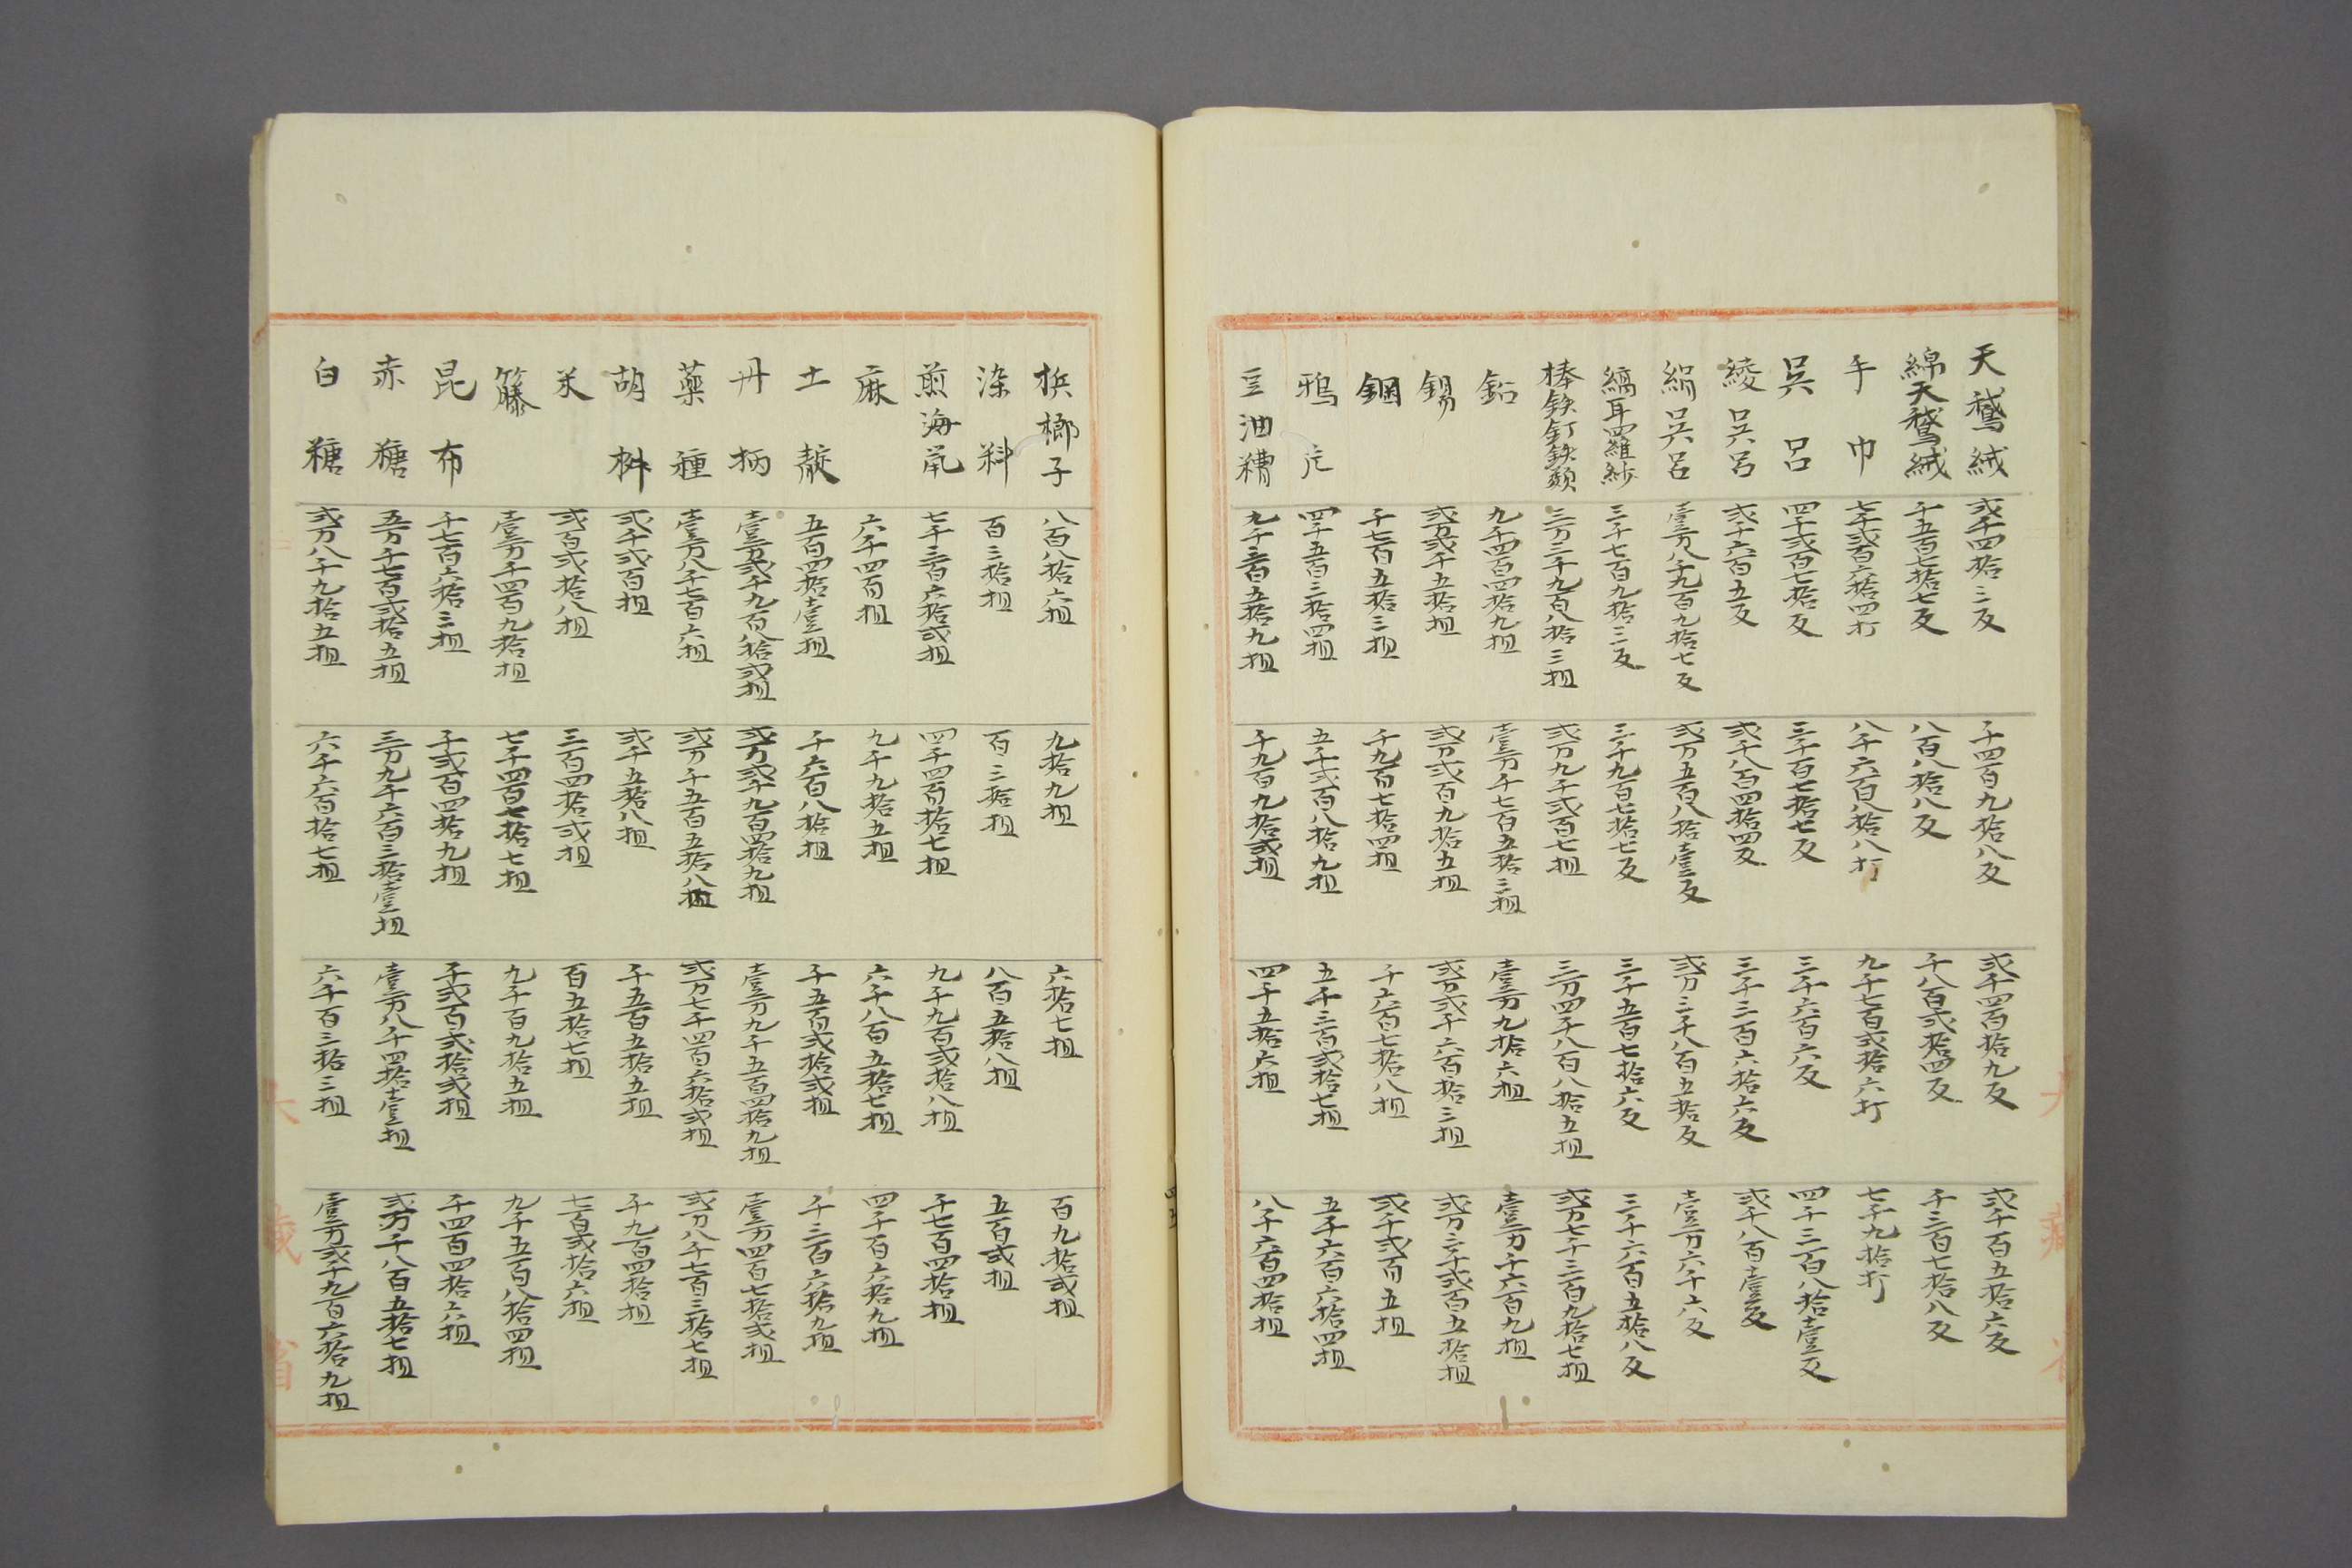 天鵞絨 弐千四拾三反 千四百九拾八反 弐千四百拾九反 弐千百五拾六反
綿天鵞絨 千五百七拾七反 八百八拾八反 千八百弐拾四反 千三百七拾八反
手巾 七千弐百六拾四打 八千六百八拾八打 九千七百弐拾六打 七千九拾打
呉呂 四千弐百七拾反 三千百七拾七反 三千六百六反 四千三百八拾壹反
綾呉呂 弐千六百五反 弐千八百四拾四反 三千三百六拾六反 弐千八百壹反
絹呉呂 壹万八千九百九拾七反 弐万五百八拾壹反 弐万三千八百五拾反 壹万六千六反
縞耳四羅紗 三千七百九拾三反 三千九百七拾七反 三千五百七拾六反 三千六百五拾八反
棒鉄釘鉄類 三万三千九百八拾三担 弐万九千弐百七担 三万四千八百八拾五担 弐万七千三百九拾七担
鉛 九千四百四拾九担 壹万千七百五拾三担 壹万九拾六担 壹万千六百九担
錫 弐万弐千五拾担 弐万弐百九拾五担 弐万弐千六百拾三担 弐万三千弐百五拾担
鋼 千七百五拾三担 千九百七拾四担 千六百七拾八担 弐千弐百五担
鴉片 四千五百三拾四担 五千弐百八拾九担 五千三百弐拾七担 五千六百六拾四担
豆油糟 九千三百五拾九担 千九百九拾弐担 四千五拾六担 八千六百四拾担
梹榔子 八百八拾六担 九拾九担 六拾七担 百九拾弐担
染料 百三拾担 百三拾担 八百五拾八担 五百弐担
煎海鼠 七千三百六拾弐担 四千四百拾七担 九千九百弐拾八担 千七百四拾担
麻 六千四百担 九千九拾五担 六千八百五拾七担 四千百六拾九担
土靛 五百四拾壹担 千六百八拾担 千五百弐拾弐担 千三百六拾九担
丹柄 壹万弐千九百八拾弐担 弐万弐千九百四拾九担 壹万九千五百四拾九担 壹万四百七拾弐担
薬種 壹万八千七百六担 弐万千五百五拾八担 弐万七千四百六拾弐担 弐万八千七百三拾七担
胡椒 弐千弐百担 弐千五拾八担 千五百五拾五担 千九百四拾担
米 弐百弐拾八担 三百四拾弐担 百五拾七担 七百弐拾六担
籐 壹万千四百九拾担 七千四百七拾七担 九千百九拾五担 九千五百八拾四担
昆布 千七百六拾三担 千弐百四拾九担 千弐百弐拾弐担 千四百四拾六担
赤糖 五万千七百弐拾五担 三万九千六百三拾壹担 壹万八千四拾壹担 弐万千八百五拾七担
白糖 弐万八千九拾五担 六千六百拾七担 六千百三拾三担 壹万弐千九百六拾九担